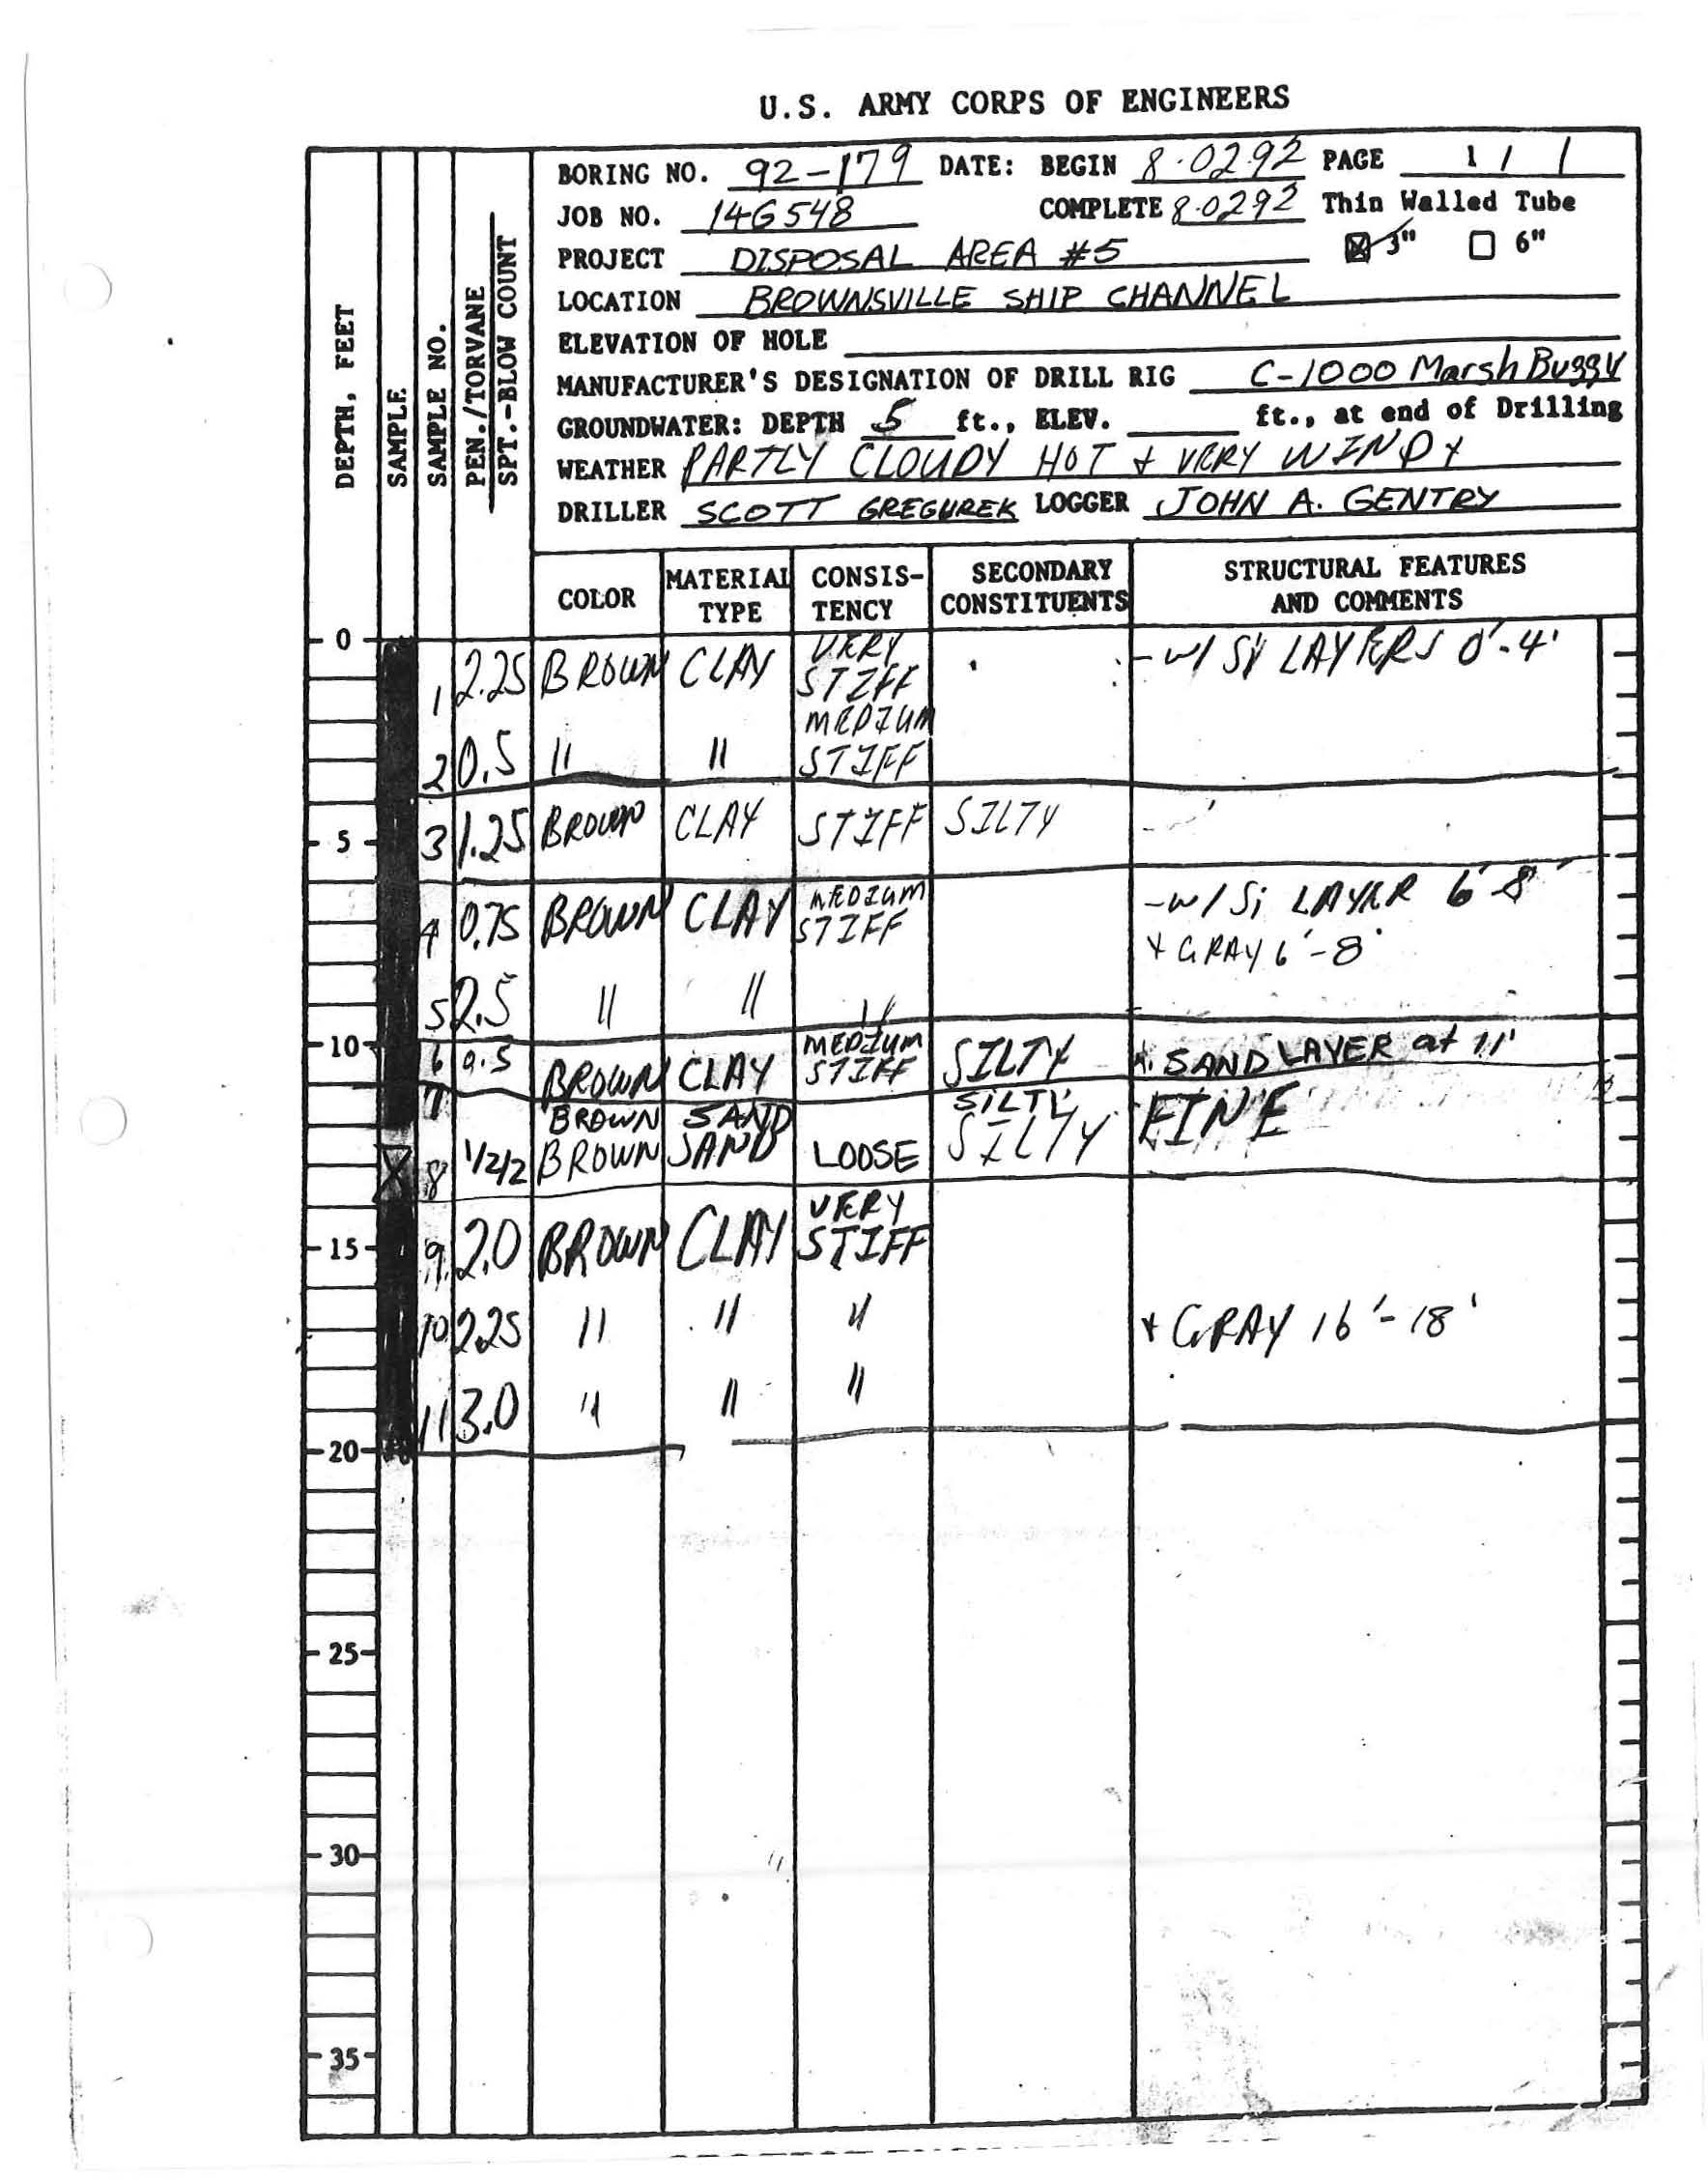 U.S. ARMY CORPS OF ENGINEERS
BORING NO. 92-179 DATE: BEGIN 8-0292 PAGE 1 / 1
JOB NO. 14G548 COMPLETE 8-0292 Thin Walled Tube
PROJECT DISPOSAL AREA #5 ☒ 3" ☐ 6"
LOCATION BROWNSVILLE SHIP CHANNEL
ELEVATION OF HOLE
MANUFACTURER'S DESIGNATION OF DRILL RIG C-1000 Marsh Buggy
GROUNDWATER: DEPTH 5 ft., ELEV. ft., at end of Drilling
WEATHER PARTLY CLOUDY HOT + VERY WINDY
DRILLER SCOTT GREGUREK LOGGER JOHN A. GENTRY
DEPTH, FEET
SAMPLE
SAMPLE NO.
PEN./TORVANE
SPT.-BLOW COUNT
COLOR
MATERIAL TYPE
CONSIS-
TENCY
SECONDARY
CONSTITUENTS
STRUCTURAL FEATURES
AND COMMENTS
0
1 2.25 BROWN CLAY VERY STIFF - w/ Si LAYERS 0'-4'
2 0.5 " " MEDIUM STIFF
5
3 1.25 BROWN CLAY STIFF SILTY
4 0.75 BROWN CLAY MEDIUM STIFF - w/ Si LAYER 6'-8'
+ GRAY 6'-8'
5 2.5 " " "
10
6 0.5 BROWN CLAY MEDIUM STIFF SILTY SAND LAYER at 11'
7 BROWN SAND SILTY FINE
8 1/2/2 BROWN SAND LOOSE SILTY
15
9 2.0 BROWN CLAY VERY STIFF
10 2.25 " " " + GRAY 16'-18'
11 3.0 " " "
20
25
30
35